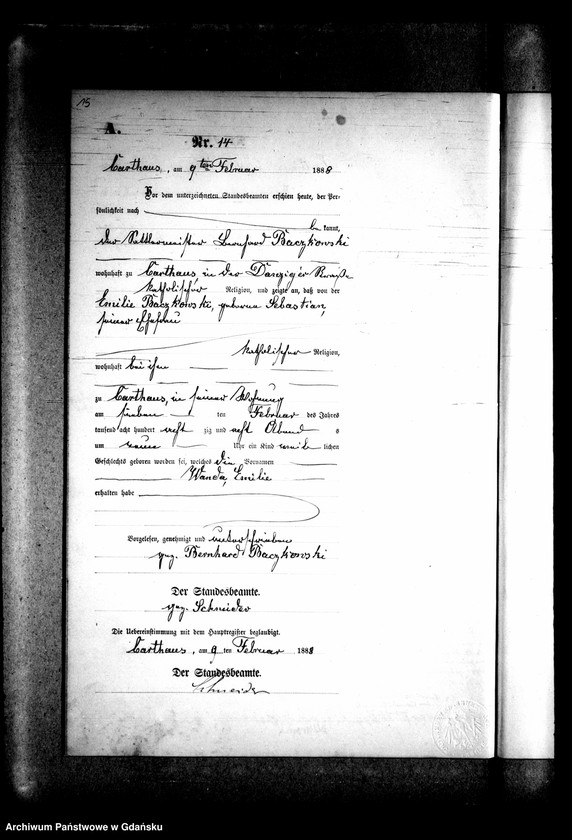 15
A.
Nr. 14
Carthaus, am 9ten Februar 1888
Vor dem unterzeichneten Standesbeamten erschien heute, der Per-
sönlichkeit nach
be kannt,
der Sattlermeister Bernhard Baczkowski
wohnhaft zu Carthaus, in der Danziger Straße
katholischer Religion, und zeigte an, daß von der
Emilie Baczkowski, geborene Sebastian,
seiner Ehefrau
katholischer Religion,
wohnhaft bei ihm
zu Carthaus, in seiner Wohnung
am sieben ten Februar des Jahres
tausend acht hundert acht zig und acht Abend s
um neun Uhr ein Kind weib lichen
Geschlechts geboren worden sei, welches die Vornamen
Wanda, Emilie
erhalten habe
Vorgelesen, genehmigt und unterschrieben
gez. Bernhard Baczkowski
Der Standesbeamte.
gez. Schneider
Die Uebereinstimmung mit dem Hauptregister beglaubigt.
Carthaus, am 9 ten Februar 1888
Der Standesbeamte.
Schneider
Archiwum Państwowe w Gdańsku